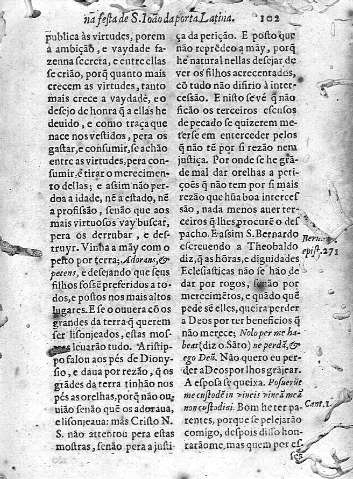 na festa de S. Ioão da porta Latina. 102
publica às virtudes, porem
a ambição, e vaydade fa-
zenna secreta, e entre ellas
se crião, porq̃ quanto mais
crecem as virtudes, tanto
mais crece a vaydade, e o
desejo de honra q̃ a ellas he
deuido, e como traça que
nace nos vestidos, pera os
gastar, e consumir, se achão
entre as virtudes, pera con-
sumir, e tirar o merecimen-
to dellas; e assim não per-
doa a idade, nẽ a estado, nẽ
a profissão, senão que aos
mais virtuosos vay buscar,
pera os derrubar, e des-
truyr. Vinha a mãy com o
pesto por terra; Adorans, &
petens, e desejando que seus
filhos fossẽ preferidos a to-
dos, e postos nos mais altos
lugares. E se o ouuera cõ os
grandes da terra q̃ querem
ser lisonjeados, estas mos-
leuarão tudo. Aristip-
po falou aos pés de Diony-
sio, e daua por rezão, q̃ os
grãdes da terra tinhão nos
pés as orelhas, porq̃ não ou-
uião senão que os adoraua,
e lisonjeaua: mas Cristo N.
S. não attentou pera estas
mostras, senão pera a justi-
ça da petição. E posto que
não reprẽdeo a mãy, porq̃
he natural nellas desejar de
ver os filhos acrecentados,
cõ tudo não difirio à inter-
cessão. E nisto se vé q̃ não
ficão os terceiros escusos
de pecado se quizerem me-
terse em enterceder pelos
q̃ não tẽ por si rezão nem
justiça. Por onde se he grã-
de mal dar orelhas a peti-
ções q̃ não tem por si mais
rezão que hũa boa interces
saõ, nada menos auer terce-
iros q̃ lhes procurẽ o des-
pacho. E assim S. Bernardo
escreuendo a Theobaldo
diz, q̃ as hõras, e dignidades
Eclesiasticas não se hão de
dar por rogos, senão por
merecimẽtos, e quãdo quẽ
pede sẽ elles, queira perder
a Deos por ter beneficios q̃
não merece; Nolo per me ha-
beat (diz o Sãto) ne perdã, &
ego Deũ. Não quero eu per-
der a Deos por lhos grãjear.
A esposa se queixa. Posuerũt
me custodẽ in vineis vineã meã
non custodiui. Bom heter pa-
rentes, porque se pelejarão
comigo, despois disso hon-
rarãome, mas quem per es-
ses
Bern.
epist. 271
Cant. 1.